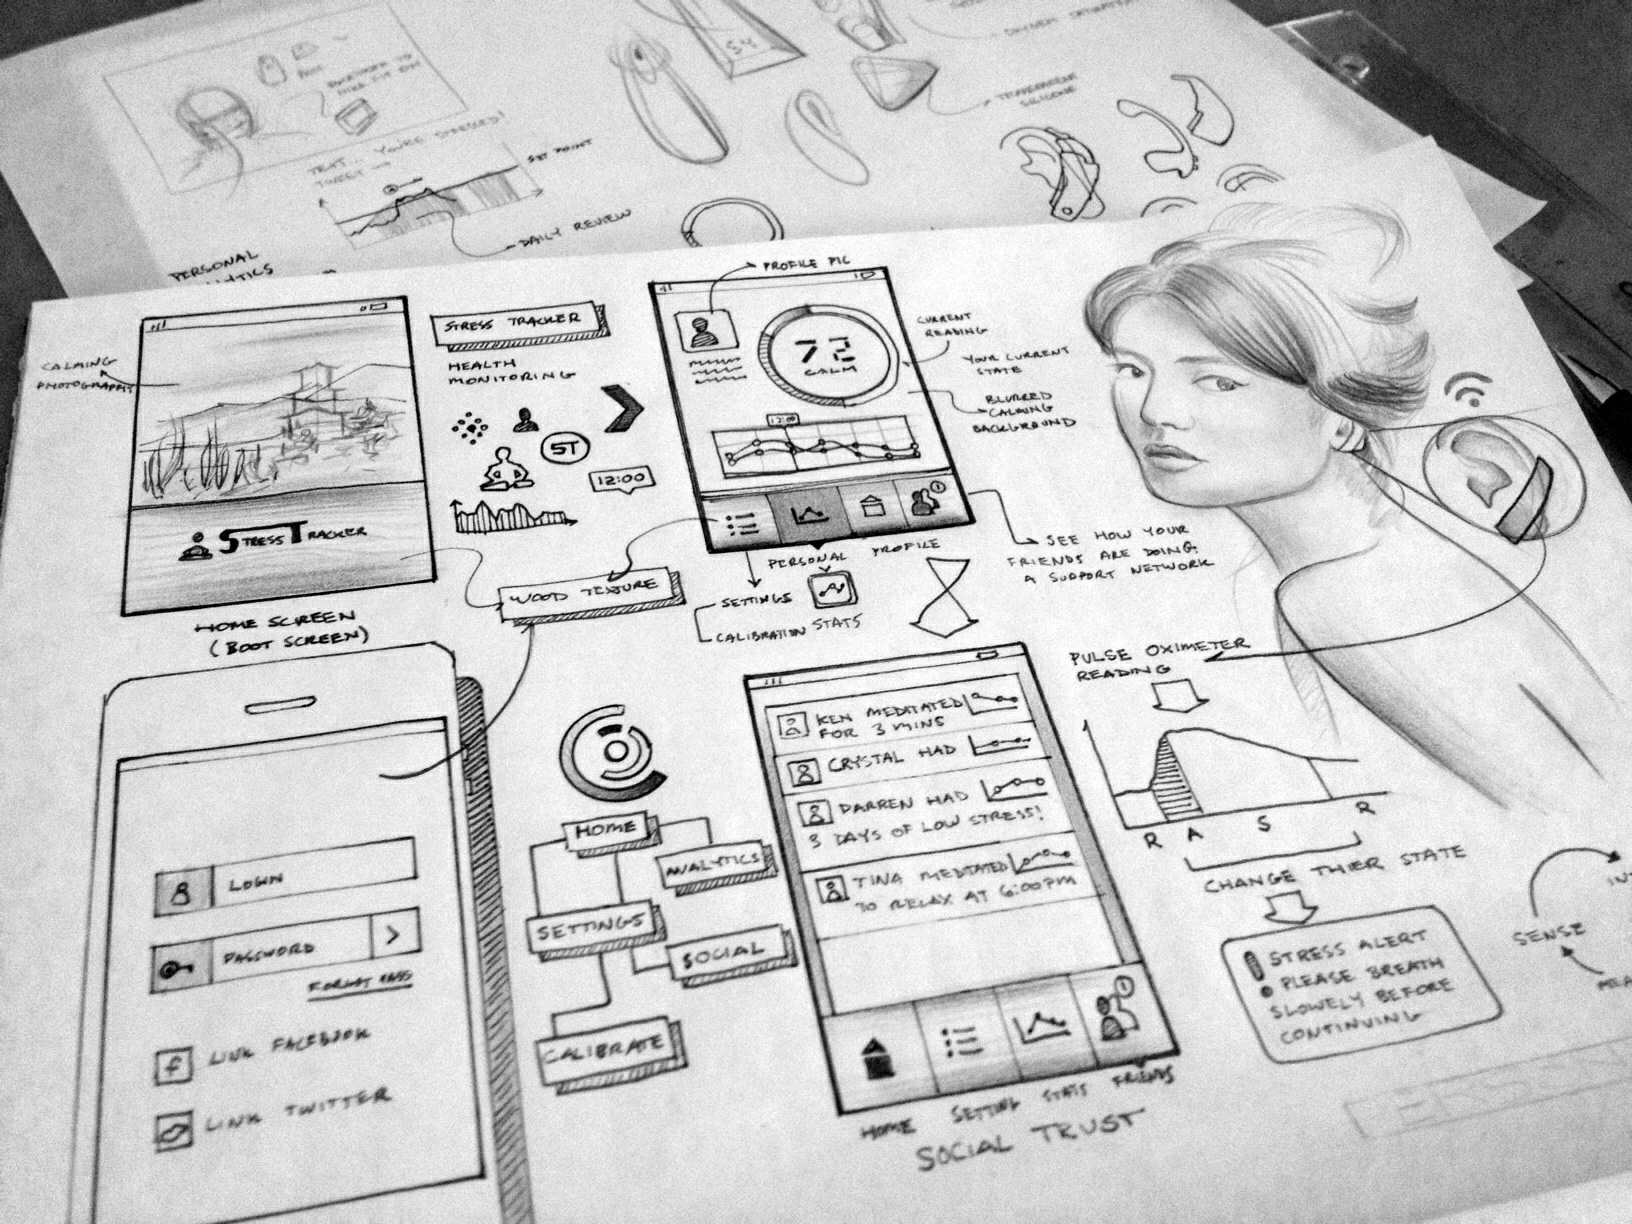 TEXT... YOU'RE STRESSED!
TWEET
SET POINT
DAILY REVIEW
PERSONAL
54
TRANSPARENT
SILICONE
CALMING
PHOTOGRAPHY
STRESS TRACKER
HOME SCREEN
(BOOT SCREEN)
STRESS TRACKER
HEALTH
MONITORING
ST
12:00
WOOD TEXTURE
PROFILE PIC
72
CALM
12:00
CURRENT
READING
YOUR CURRENT
STATE
BLURRED
CALMING
BACKGROUND
PERSONAL
PROFILE
SETTINGS
CALIBRATION
STATS
SEE HOW YOUR
FRIENDS ARE DOING
A SUPPORT NETWORK
LOGIN
PASSWORD
FORGOT PASS
f
LINK FACEBOOK
LINK TWITTER
HOME
ANALYTICS
SETTINGS
SOCIAL
CALIBRATE
KEN MEDITATED
FOR 3 MINS
CRYSTAL HAD
DARREN HAD
3 DAYS OF LOW STRESS!
TINA MEDITATED
TO RELAX AT 6:00PM
HOME
SETTING
STATS
FRIENDS
SOCIAL TRUST
PULSE OXIMETER
READING
R A S R
CHANGE THIER STATE
STRESS ALERT
PLEASE BREATH
SLOWELY BEFORE
CONTINUING
SENSE